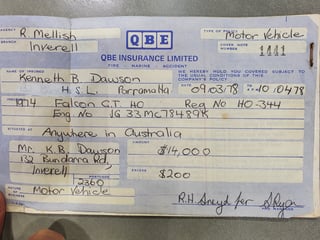 AGENCY
R. Mellish
BRANCH
Inverell
QBE
QBE INSURANCE LIMITED
FIRE - MARINE - ACCIDENT
TYPE OF
Motor Vehicle
COVER NOTE NUMBER
1441
WE HEREBY HOLD YOU COVERED SUBJECT TO THE USUAL CONDITIONS OF THIS COMPANY'S POLICY
NAME OF INSURED
Kenneth B. Dawson
H.S.L. Parramatta
FROM 09.03.78 TO 10.04.78
1974 Falcon G.T HO Reg No HO-344
Eng. No JG 33 MC 78489K
SITUATED AT
Anywhere in Australia
Mr. K.B. Dawson
132 Bundarra Rd,
Inverell
POSTCODE
2360
AMOUNT
$14,000
EXCESS
$200
NATURE OF BUSINESS
Motor Vehicle
R.H. Sneyd for S Ryan
MANAGER